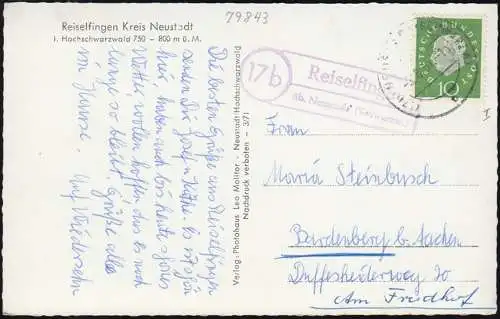 79843
Reiselfingen Kreis Neustadt
i. Hochschwarzwald 750 - 800 m ü. M.
Die besten Grüße aus Reiselfingen
senden Dir Josef u. Käthe. Es ist schön
hier, haben auch bis heute schönes
Wetter, wollen hoffen das es noch
lange so bleibt. Grüße alle
zu Hause. Auf Wiedersehn
Verlag: Photohaus Leo Molitor - Neustadt Hochschwarzwald
Nachdruck verboten - 3/71
17b
Reiselfingen
üb. Neustadt (Schwarzw)
DEUTSCHE BUNDESPOST
10
Frau
Maria Steinbusch
Bardenberg b. Aachen
Duffesheiderweg 20
Am Friedhof